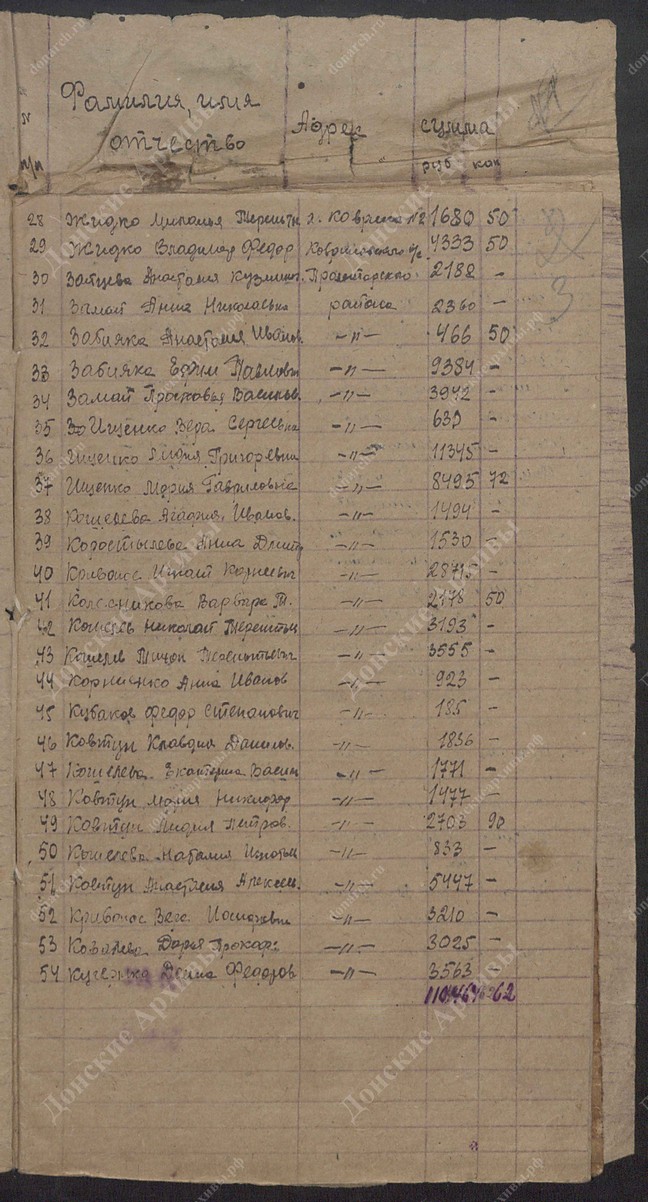 № Фамилия, имя Адрес сумма
п/п отчество руб коп
28 Жидко Терентьев х. Ковриха №2 1680 50
29 Жидко Владимир Федор 4333 50
30 Зайцева Анастасия Кузьминич. Пролетарского 2188 -
31 Замай Анна Николаевна района 2360 -
32 Забияка Анастасия Иванов. -"- 466 50
33 Забияка Ефим Павлович -"- 9384 -
34 Замай Прасковья Васильев. -"- 3942 -
35 Ищенко Вера Сергеевна -"- 630 -
36 Ищенко Лидия Григорьевна -"- 11345 -
37 Ищенко Мария Гавриловна -"- 8495 72
38 Кошелева Агафия Иванов. -"- 1494 -
39 Коростылева Анна Дмитр -"- 1530 -
40 Кривонос Игнат Корнеевич -"- 28715 -
41 Колесникова Варвара Т. -"- 2178 50
42 Кошелев Николай Терентьев -"- 3193 -
43 Кошелев Терентьевич -"- 3555 -
44 Корниенко Анна Иванов -"- 923 -
45 Кубаков Федор Степанович -"- 185 -
46 Ковтун Клавдия Данилов. -"- 1836 -
47 Кошелева Екатерина Васил -"- 1771 -
48 Ковтун Мария Никифор -"- 1477 -
49 Ковтун Лидия Петров. -"- 2703 90
50 Кошелева Наталия Игнатьев -"- 833 -
51 Ковтун Анастасия Алексеев. -"- 5447 -
52 Кривонос Вера -"- 3210 -
53 Ковалева Дарья Прокоф -"- 3025 -
54 Федоров -"- 3563 -
62
3
Донские Архивы
donarch.ru
донскиеархивы.рф